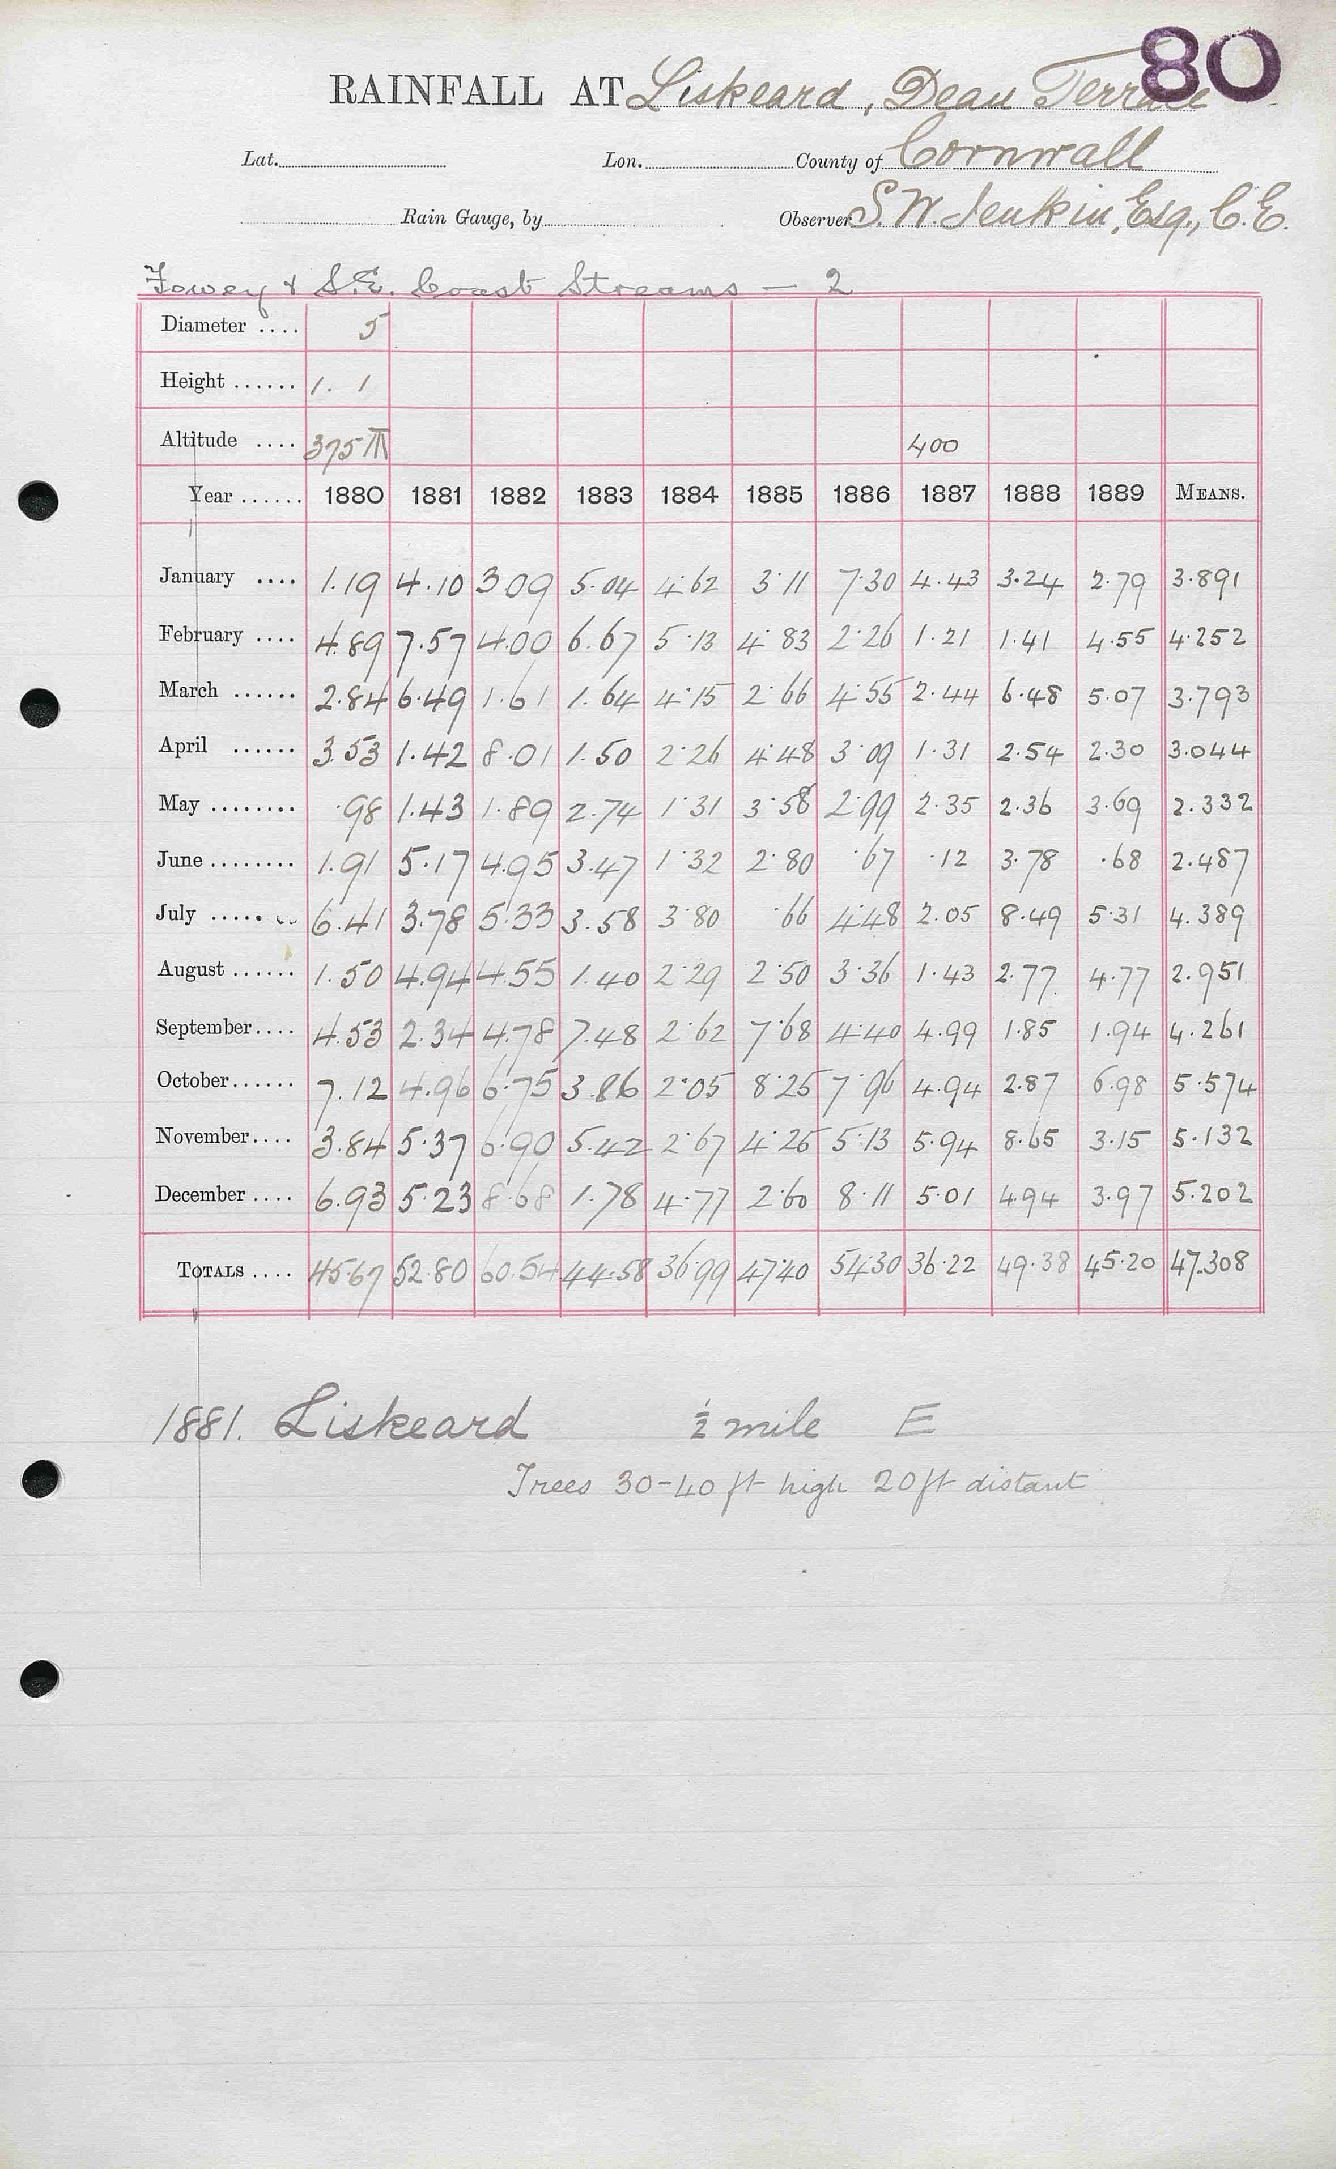 80
RAINFALL AT Liskeard, Dean Terrace
Lat. Lon. County of Cornwall
Rain Gauge, by Observer S. W. Jenkin, Esq., C.E.
Fowey & S.E. Coast Streams — 2
Diameter .... 5
Height ...... 1. 1
Altitude .... 375 T 400
Year ...... 1880 1881 1882 1883 1884 1885 1886 1887 1888 1889 MEANS.
January .... 1.19 4.10 3.09 5.04 4.62 3.11 7.30 4.43 3.24 2.79 3.891
February .... 4.89 7.57 4.00 6.67 5.13 4.83 2.26 1.21 1.41 4.55 4.252
March ...... 2.84 6.49 1.61 1.64 4.15 2.66 4.55 2.44 6.48 5.07 3.793
April ...... 3.53 1.42 8.01 1.50 2.26 4.48 3.09 1.31 2.54 2.30 3.044
May ........ .98 1.43 1.89 2.74 1.31 3.58 2.99 2.35 2.36 3.69 2.332
June ........ 1.91 5.17 4.95 3.47 1.32 2.80 .67 .12 3.78 .68 2.487
July ..... 6.41 3.78 5.33 3.58 3.80 .66 4.48 2.05 8.49 5.31 4.389
August ...... 1.50 4.94 4.55 1.40 2.29 2.50 3.36 1.43 2.77 4.77 2.951
September.... 4.53 2.34 4.78 7.48 2.62 7.68 4.40 4.99 1.85 1.94 4.261
October...... 7.12 4.96 6.75 3.86 2.05 8.25 7.96 4.94 2.87 6.98 5.574
November.... 3.84 5.37 6.90 5.42 2.67 4.25 5.13 5.94 8.65 3.15 5.132
December .... 6.93 5.23 8.68 1.78 4.77 2.60 8.11 5.01 4.94 3.97 5.202
TOTALS .... 45.67 52.80 60.54 44.58 36.99 47.40 54.30 36.22 49.38 45.20 47.308
1881. Liskeard ½ mile E
Trees 30-40 ft high 20 ft distant